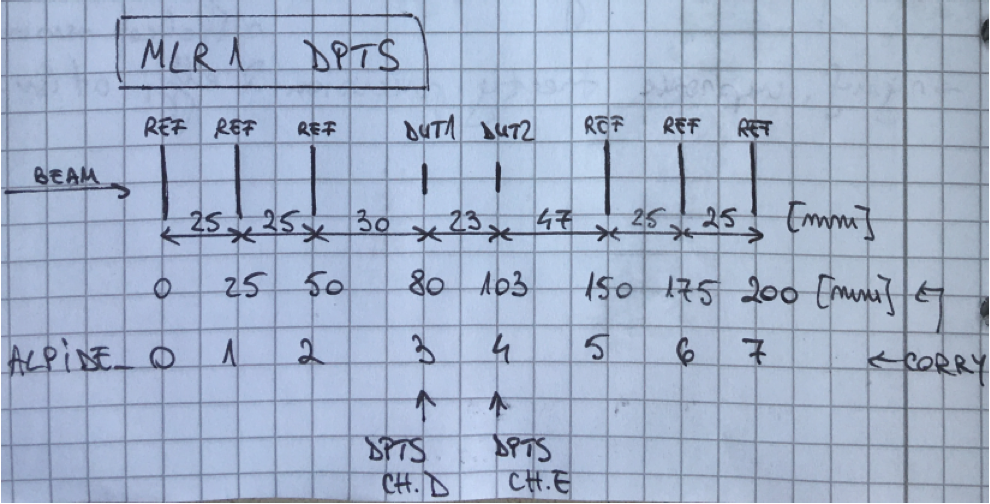 MLR1 DPTS
REF REF REF DUT1 DUT2 REF REF REF
BEAM
25 25 30 23 47 25 25 [mm]
0 25 50 80 103 150 175 200 [mm]
ALPIDE_ 0 1 2 3 4 5 6 7 ← CORRY
DPTS DPTS
CH.D CH.E